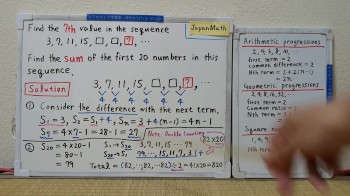 Find the 7th value in the sequence
JapanMath
3, 7, 11, 15, □, □, ?, ...
Find the sum of the first 20 numbers in this
sequence.
Solution
3, 7, 11, 15, □, □, ?, ...
4 4 4 4 4 4
① Consider the difference with the next term.
S₁ = 3, S₂ = S₁+4, Sₙ = 3+4(n-1) = 4n-1
S₇ = 4×7-1 = 28-1 = 27
Note: Double Counting
② S₂₀ = 4×20-1
= 80-1
= 79
S₁→S₂₀ 3, 7, 11, 15 ... 79
S₂₀→S₁ 79, ..., 15, 11, 7, 3
(82×20)
Total = (82, ..., 82)÷2 = 41×20 = 820
Arithmetic progressions
2, 4, 6, 8, 10, ...
first term = 2
common difference = 2
Nth term =
Geometric progressions
2, 4, 8, 16, 32, ...
first term = 2
Common ratio =
Nth term =
Square